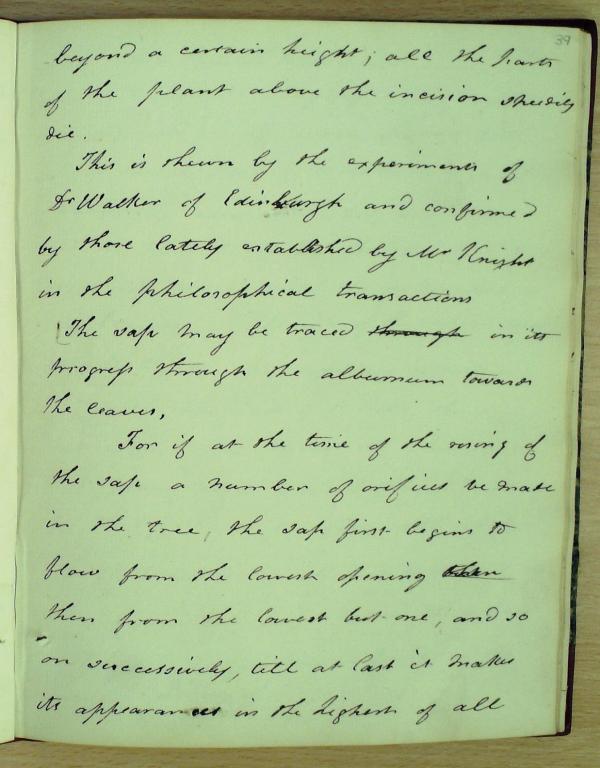 39
beyond a certain height; all the parts
of the plant above the incision speedily
die.
This is shewn by the experiments of
Dr Walker of Edinburgh and confirmed
by those lately established by Mr Knight
in the philosophical transactions
The sap may be traced through in its
progress through the alburnum towards
the leaves,
For if at the time of the rising of
the sap a number of orifices be made
in the tree, the sap first begins to
flow from the lowest opening then
then from the lowest but one, and so
on successively, till at last it makes
its appearances in the highest of all